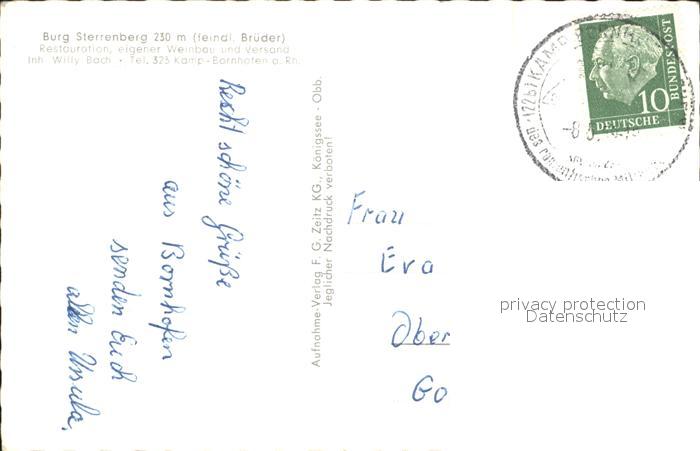 Burg Sterrenberg 230 m (feindl. Brüder)
Restauration, eigener Weinbau und Versand
Inh. Willy Bach • Tel. 325 Kamp-Bornhofen a. Rh.
Recht schöne Grüße
aus Bornhofen
senden Euch
allen Ursula,
Aufnahme-Verlag F. G. Zeitz KG., Königssee - Obb.
Jeglicher Nachdruck verboten!
(22b) KAMP
BUNDESPOST
10
DEUTSCHE
Frau
Eva
Ober
Go
privacy protection
Datenschutz